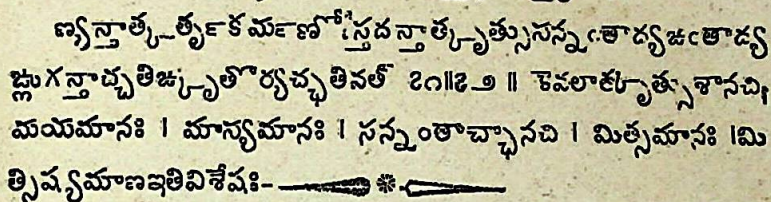 ణ్యన్తాత్కర్తృకర్మణోస్తదన్తాత్కృత్సుసన్నంతాద్యఙంతాద్య
ఙ్లుగన్తాచ్చతిఙ్కృతోర్యచ్ఛతివత్ ౭౧॥౭౨ ॥ కేవలాత్కృత్సుశానచి
మయమానః । మాస్యమానః । సన్నంతాచ్ఛానచి । మిత్సమానః ।మి
త్సిష్యమాణఇతివిశేషః-